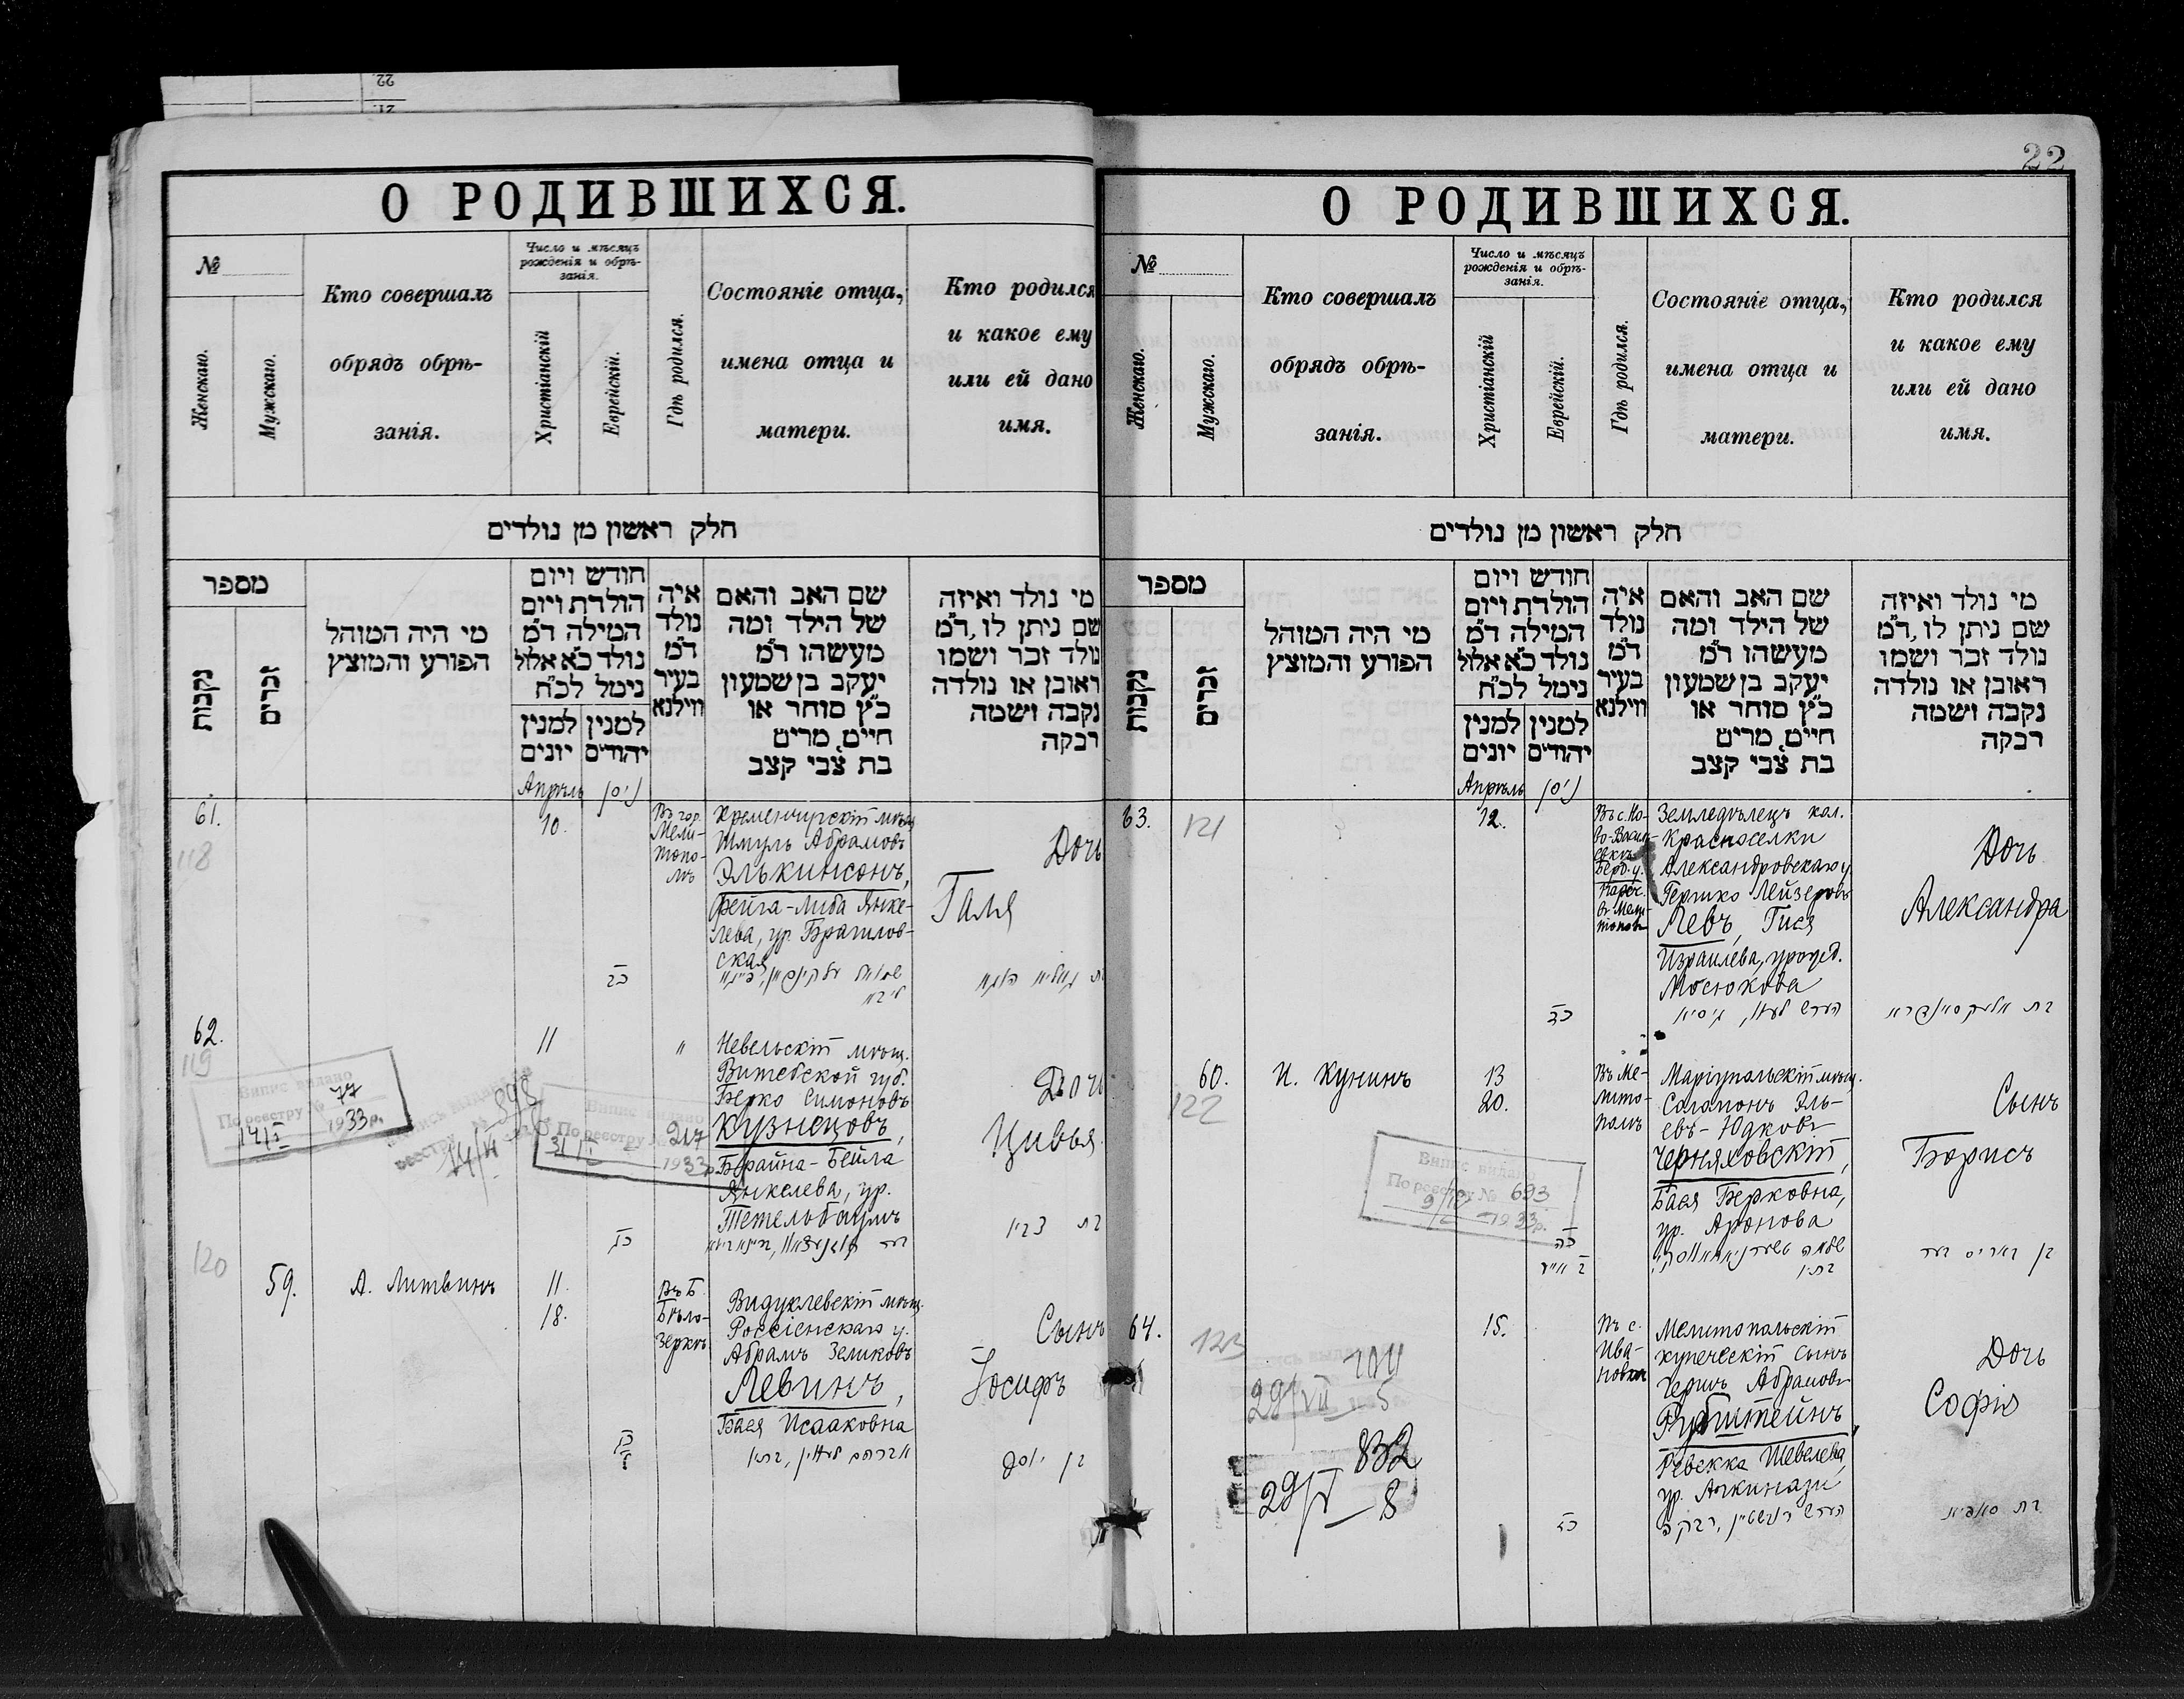 22.
21.
22
О РОДИВШИХСЯ.
№
Женскаго.
Мужскаго.
Кто совершалъ
обрядъ обрѣ-
занія.
Число и мѣсяцъ
рожденія и обрѣ-
занія.
Христіанскій
Еврейскій.
Гдѣ родился.
Состояніе отца,
имена отца и
матери.
Кто родился
и какое ему
или ей дано
имя.
חלק ראשון מן נולדים
מספר
נקבות
זכרים
מי היה המוהל
הפורע והמוצץ
חודש ויום
הולדת ויום
המילה ד״מ
נולד כ״א אלול
נימל לכ״ח
למנין
יונים
למנין
יהודים
איה
נולד
ד״מ
בעיר
ווילנא
שם האב והאם
של הילד ומה
מעשהו ד״מ
יעקב בן שמעון
כ״ץ סוחר או
חייט, מריט
בת צבי קצב
מי נולד ואיזה
שם ניתן לו, ד״מ
נולד זכר ושמו
ראובן או נולדה
נקבה ושמה
רבקה
Апрѣль
ניסן
61.
118
10.
כג
Въ гор.
Мели-
топо-
лѣ
Кременчугскій мѣщ.
Шмуль Абрамовъ
Элькинсонъ,
Фейга-Либа Янке-
лева, ур. Брагилов-
ская
Дочь
Галя
62.
119
11
"
כד
Невельскій мѣщ.
Витебской губ.
Берко Симоновъ
Кузнецовъ,
Брайна-Бейла
Янкелева, ур.
Тетельбаумъ
Дочь
Цивья
Випис видано
По реестру № 77
1933р.
898
Випис видано
По реестру № 217
1933р.
120
59.
А. Литвинъ
11.
18.
כד
Въ Б.
Бѣло-
зеркѣ
Видуклевскій мѣщ.
Россіенскаго у.
Абрамъ Зеликовъ
Левинъ,
Бася Исааковна
Сынъ
Іосифъ
בן יוסף
О РОДИВШИХСЯ.
№
Женскаго.
Мужскаго.
Кто совершалъ
обрядъ обрѣ-
занія.
Число и мѣсяцъ
рожденія и обрѣ-
занія.
Христіанскій
Еврейскій.
Гдѣ родился.
Состояніе отца,
имена отца и
матери.
Кто родился
и какое ему
или ей дано
имя.
חלק ראשון מן נולדים
מספר
נקבות
זכרים
מי היה המוהל
הפורע והמוצץ
חודש ויום
הולדת ויום
המילה ד״מ
נולד כ״א אלול
נימל לכ״ח
למנין
יונים
למנין
יהודים
איה
נולד
ד״מ
בעיר
ווילנא
שם האב והאם
של הילד ומה
מעשהו ד״מ
יעקב בן שמעון
כ״ץ סוחר או
חייט, מריט
בת צבי קצב
מי נולד ואיזה
שם ניתן לו, ד״מ
נולד זכר ושמו
ראובן או נולדה
נקבה ושמה
רבקה
Апрѣль
ניסן
63.
121
12.
Въ с. Но-
во-Васил-
Берд. у.
Земледѣлецъ кол.
Красноселки
Александровскаго у.
Гершко Лейзеровъ
Левъ, Гися
Израилева, урожд.
Мосюкова
Дочь
Александра
60.
122
И. Кунинъ
13
20.
כה
Въ Ме-
лито-
полѣ
Маріупольскій мѣщ.
Саломонъ Эль-
евъ-Юдковъ
Черняховскій,
Бася Берковна,
ур. Аронова
Сынъ
Борисъ
Випис видано
По реестру № 693
1933р.
64.
123
15.
Въ с.
Ива-
новка
Мелитопольскій
купеческій сынъ
Герцъ Абрамовъ
Рубштейнъ,
Ревекка Шевелева,
ур. Ашкинази
Дочь
Софія
בת סאפיא
29/VII 5
832
29/V 8